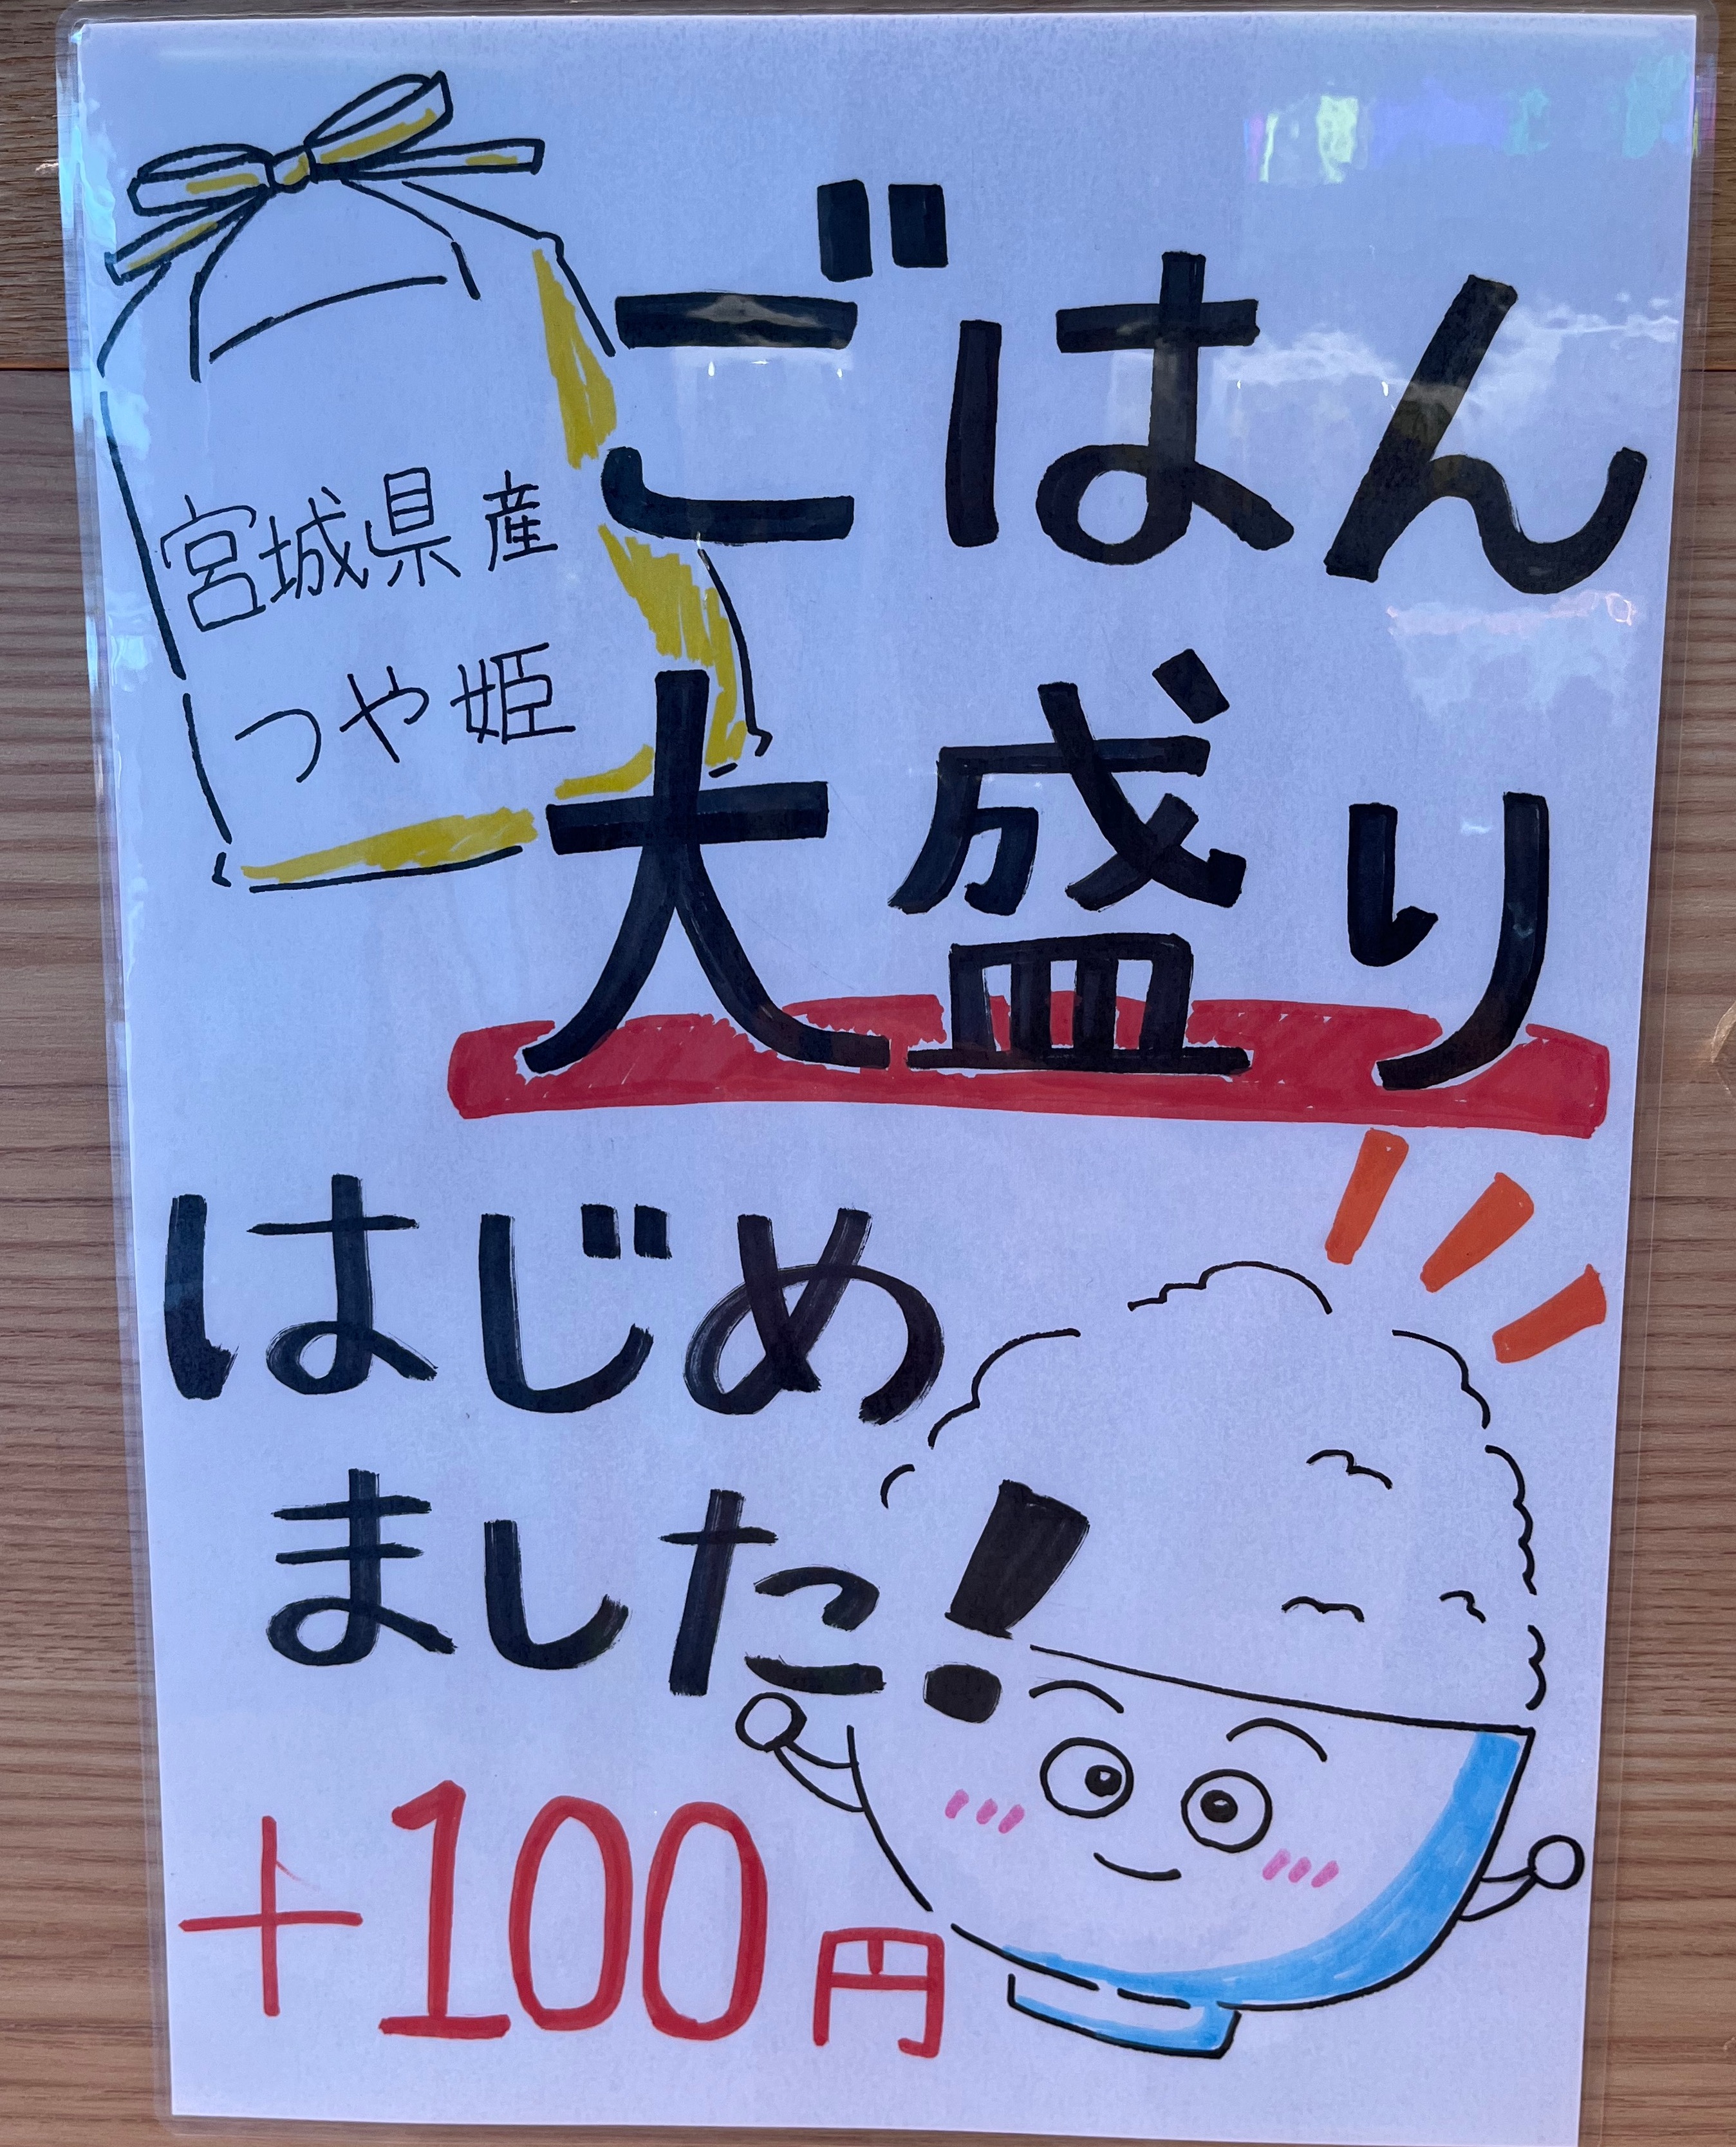 宮城県産
つや姫
ごはん
大盛り
はじめ
ました!
+100円